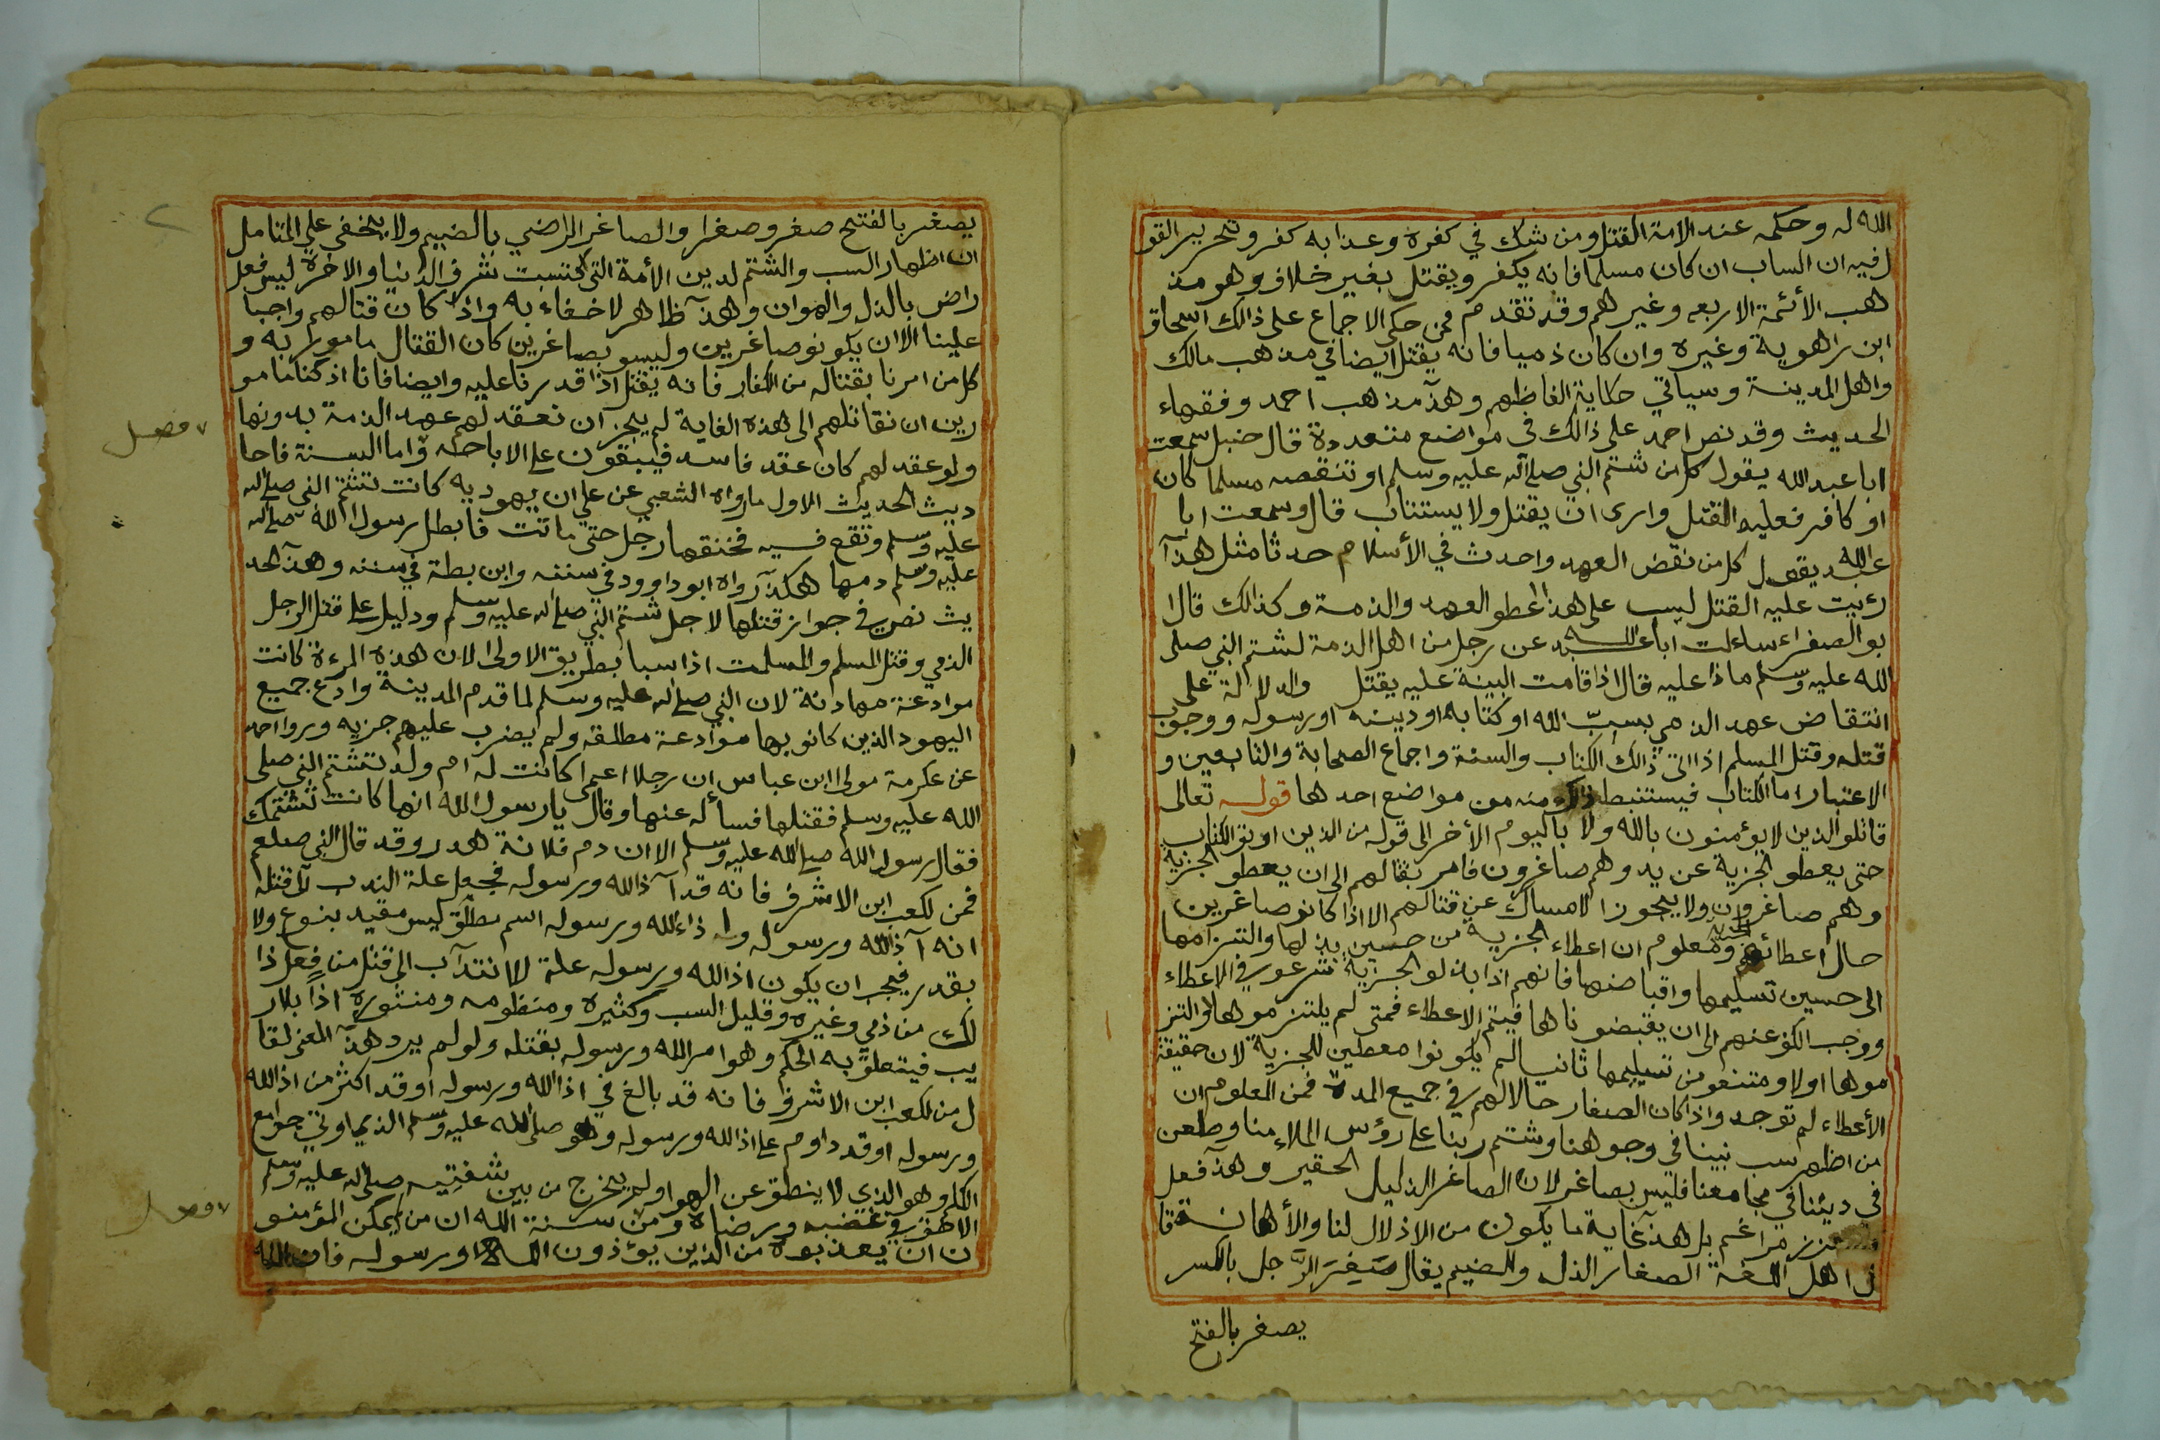 الله له وحكمه عند الامة القتل ومن شك في كفره وعذابه كفر وتحرير القو
ل فيه ان الساب ان كان مسلما فانه يكفر ويقتل بغير خلاف وهو مذ
هب الأئمة الاربعه وغيرهم وقد تقدم ممن حكى الاجماع على ذالك اسحاق
ابن راهوية وغيره وان كان ذميا فانه يقتل ايضا في مذهب مالك
واهل المدينة وسياتي حكاية الفاظهم وهذآ مذهب احمد وفقهاء
الحديث وقد نص احمد على ذالك في مواضع متعددة قال حنبل سمعت
ابا عبد الله يقول كل من شتم النبي صلى الله عليه وسلم او تنقصه مسلما كان
او كافر فعليه القتل وارى ان يقتل ولا يستتاب قال وسمعت ابا
عبد الله يقول كل من نقض العهد واحدث في الأسلام حدثا مثل هذآ
رءيت عليه القتل ليس على هذا اعطو العهد والذمة وكذالك قال ا
بو الصفراء ساءلت ابا عبد الله عن رجل من اهل الذمة لشتم النبي صلى
الله عليه وسلم ماذا عليه قال اذا قامت البينة عليه يقتل والدلالة على
انتقاض عهد الذمي بسبّ الله او كتابه او دينه او رسوله ووجوب
قتله وقتل المسلم اذا اتى ذالك الكتاب والسنة واجماع الصحابة والتابعين و
الاعتبار اما الكتاب فيستنبط ذلك منه من مواضع احدها قوله تعالى
قاتلو الذين لا يؤمنون بالله ولا باليوم الأخر الى قوله من الذين اوتو الكتاب
حتى يعطو الجزية عن يد وهم صاغرون فامر بقتالهم الى ان يعطو الجزية
وهم صاغرون ولا يجوز الامساك عن قتالهم الا اذا كانو صاغرين
حال اعطائهم الجزية ومعلوم ان اعطاء الجزية من حسين بذلها والتزامها
الى حسين تسليمها واقباضها فانهم اذا بذلو الجزية شرعو في الاعطاء
ووجب الكف عنهم الى ان يقبضوناها فيتم الاعطاء فمتى لم يلتزموها او التز
موها اولا ومتنعو من تسليمها ثانيا لم يكونوا معطين للجزية لان حقيقة
الأعطاء لم توجد واذا كان الصغار حالا لهم في جميع المدة فمن المعلوم ان
من اظهر سب نبينا في وجوهنا وشتم ربنا على رؤس الملاء منا وطعن
في ديننا في مجامعنا فليس بصاغر لان الصاغر الذليل الحقير وهذآ فعل
عزز مراغم بل هذآ غاية ما يكون من الاذلال لنا والأهانة قا
ل اهل اللغة الصغار الذل والضيم يقال صَغِرَ الرَّجل بالكسر
يصغر بالفتح
يصغر بالفتح صغر وصغرا والصاغر الراضي بالضيم ولا يخفى علي المتامل
ان اظهار السب والشتم لدين الأمة التي اكتسبت شرف الدنيا والاخرة ليس فعل
راض بالذل والهوان وهذآ ظاهر لا خفاء به واذا كان قتالهم واجبا
علينا الا ان يكونو صاغرين وليسو بصاغرين كان القتال مامورا به و
كل من امرنا بقتاله من الكفار فانه يقتل اذا قدرنا عليه وايضا فانا اذ كنا مامو
رين ان نقاتلهم الى هذه الغاية لم يجز ان نعقد لهم عهد الذمة بدونها
ولو عقد لهم كان عقد فاسد فيبقون على الاباحة واما السنة فاحا
ديث الحديث الاول ما رواه الشعبي عن علي ان يهوديه كانت تشتم النبي صلى الله
عليه وسلم وتقع فسيه فخنقها رجل حتى ماتت فابطل رسول الله صلى الله
عليه وسلم دمها هكذآ رواه ابو داوود في سننه وابن بطة في سننه وهذآ الحد
يث نص في جواز قتلها لاجل شتم النبي صلى الله عليه وسلم ودليل على قتل الرجل
الذمي وقتل المسلم والمسلمت اذا سبا بطريق الاولى الان هذه المرءة كانت
موادعة مهادنة لان النبي صلى الله عليه وسلم لما قدم المدينة وادع جميع
اليهود الذين كانو بها موادعة مطلقه ولم يضرب عليهم جزيه وروا احمد
عن عكرمة مولى ابن عباس ان رجلا اعمى كانت له ام ولد تشتم النبي صلى
الله عليه وسلم فقتلها فسأله عنها وقال يا رسول الله انها كانت تشتمك
فقال رسول الله صلى الله عليه وسلم الا ان دم فلانة هدر وقد قال النبي صلعم
فمن لكعب ابن الاشرف فانه قد آذا الله ورسوله فجعل علة الندب لى قتله
انه آذا الله ورسوله و اذاء الله ورسوله اسم مطلق ليس مقيد بنوع ولا
بقدر فيجب ان يكون اذا الله ورسوله علة لانتدآب الى قتل من فعل ذا
لك من ذمي وغيره وقليل السب وكثيره ومنظومه ومنثوره اذا بلا ر
يب فيتعلق به الحكم وهو امر الله ورسوله بقتله ولو لم يرد هذآ المعنى لقا
ل من لكعب ابن الاشرف فانه قد بالغ في اذا الله ورسوله او قد اكثر من اذا الله
ورسوله او قد داوم على اذا الله ورسوله وهو صلى الله عليه وسلم الذي اوتي جوامع
الكلم وهو الذي لا ينطق عن الهوا ولم يخرج من بين شفتيه صلى الله عليه وسلم
الا في غضبه ورضاه ومن سنة الله ان من لم يمكن المؤمنو
ن ان يعذبوه من الذين يؤذون الله او رسوله فان الله
فصل
فصل